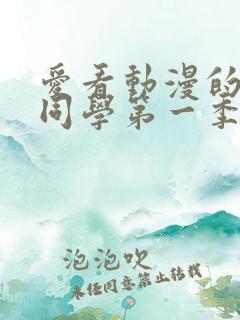 愛看動漫的
同學第一季
泡泡吹
未任同意禁止轉載